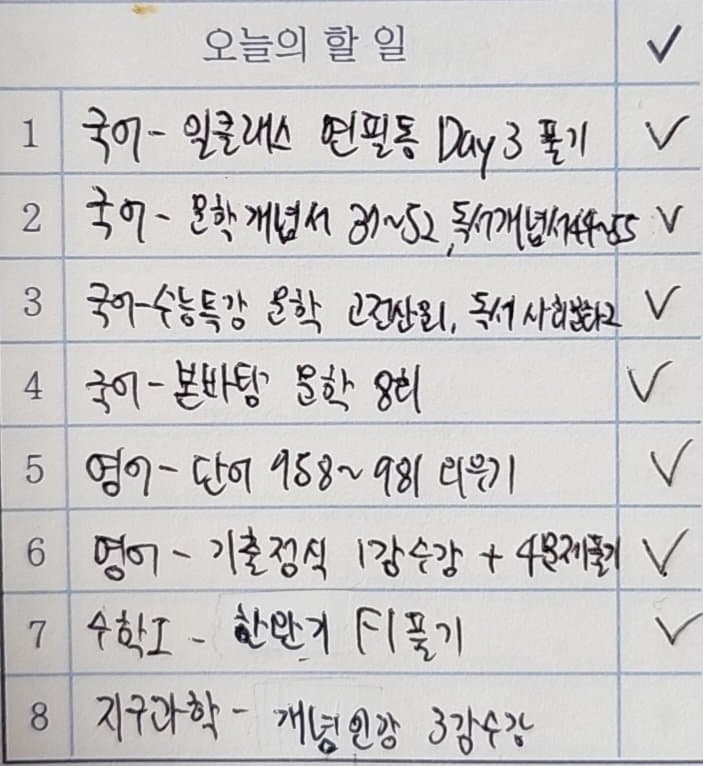 오늘의 할 일 ✓
1 국어 - 일클래스 연필통 Day 3 풀기 ✓
2 국어 - 문학개념서 31~52, 독서개념서44~55 ✓
3 국어 - 수능특강 문학 고전산문1, 독서 사회문화2 ✓
4 국어 - 본바탕 문학 8회 ✓
5 영어 - 단어 958~981 외우기 ✓
6 영어 - 기출정식 1강수강 + 4문제풀기 ✓
7 수학I - 한완기 F1 풀기 ✓
8 지구과학 - 개념인강 3강수강